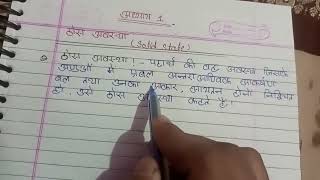 अध्याय 1
ठोस अवस्था
(Solid state)
ठोस अवस्था :- पदार्थ की वह अवस्था जिसके
अणुओं में प्रबल अन्तराआण्विक आकर्षण
बल तथा उनका आकार, आयतन दोनो निश्चित
हो उसे ठोस अवस्था कहते है।